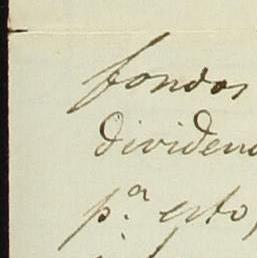 fondos
dividend
p.ª esto,